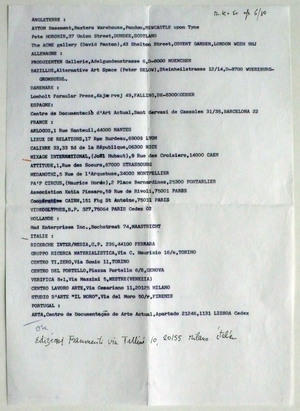 ANGLETERRE :
AYTON Basement, Bankers Warehouse, NEWCASTLE upon Tyne
Pete HOROBIN, 37 Union Street, DUNDEE, SCOTLAND
The ACME gallery (David Panton), 43 Shelton Street, COVENT GARDEN, LONDON WC2H 9HJ
ALLEMAGNE :
PRODUZENTEN Gallerie, Adelgundenstrasse 6, D-8000 MUENCHEN
BAZILLUS, Alternative Art Space (Peter BELOW), Steinheilstrasse 12/14, D-8700 WUERZBURG-
GROMBUEHL.
DANEMARK :
Lomholt Formular Press, FALLING, DK-8300 ODDER
ESPAGNE:
Centre de Documentació d'Art Actual, Sant Gervasi de Cassoles 31/35, BARCELONA 22
FRANCE :
ARLOGOS, 1 Rue Santeuil, 44000 NANTES
LIEUX DE RELATIONS, 17 Rue Burdeau, 69001 LYON
CALIBRE 33, 33 Bd de la République, 06300 NICE
MIXAGE INTERNATIONAL, (Joël Hubaut), 9 Rue des Croisiers, 14000 CAEN
ATTITUDE, 1, Rue des Soeurs, 67000 STRASBOURG
MEDAMOTHI, 5 Rue de l'Arquebuse, 34000 MONTPELLIER
PA'P CIRCUS, (Maurice Horde), 2 Place Bernardines, 25300 PONTARLIER
Association Katia Pissaro, 59 Rue de Rivoli, 75001 PARIS
Coopérative CAIRN, 151 Fbg St Antoine, 75011 PARIS
VIDEOGLYPHES, B.P. 527, 75066 PARIS Cedex 02
HOLLANDE :
Mad Enterprises Inc., Bochstraat 74, MAASTRICHT
ITALIE :
RICERCHE INTER/MEDIA, C.P. 236, 44100 FERRARA
GRUPPO RICERCA MATERIALISTICA, Via C. Maurizio 16/e, TORINO
CENTRO TI.ZERO, Via Susic 11, TORINO
CENTRO DEL PORTELLO, Piazza Portello 6/8, GENOVA
VERIFICA 8+1, Via Mazzini 5, MESTRE (VENEZIA)
CENTRO LAVORO ARTE, Via Cesariano 11, 20125 MILANO
STUDIO D'ARTE "IL MORO", Via del Moro 50/r, FIRENZE
PORTUGAL :
ARTA, Centro de Documentação de Arte Actual, Apartado 21246, 1131 LISBOA Cedex
ou
edizioni via 10, 20155 Milano